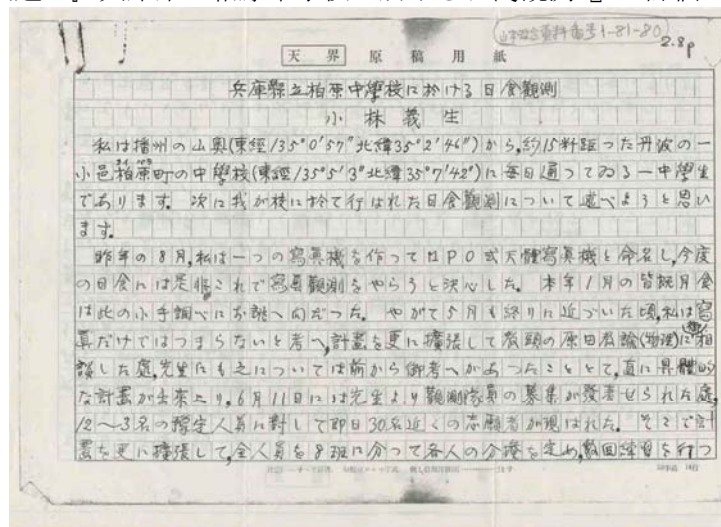 山本天文台資料番号1-81-80
2.8p
天界 原稿用紙
兵庫縣立柏原中學校に於ける日食觀測
小林義生
私は播州の山奥(東經135°0′57″北緯35°2′46″)から,約15粁距つた丹波の一
小邑柏原町の中學校(東經135°5′3″北緯35°7′42″)に毎日通つてゐる一中學生
であります。次に我が校に於て行はれた日食觀測について述べようと思い
ます。
昨年の8月,私は一つの寫眞機を作つてMPO式天體寫眞機と命名し,今度
の日食には是非これで寫眞觀測をやらうと決心した。本年1月の皆既月食
は此の小手調べにお誂へ向だつた。やがて5月も終りに近づいた頃,私は寫
眞だけではつまらないと考へ,計畫を更に擴張して教頭の原田教諭(物理)に相
談した處,先生にも之については前から御考へがあつたこととて,直に具體的
な計畫が出來上り,6月11日には先生より觀測隊員の募集が發表せられた處,
12〜3名の豫定人員に對して即日30名近くの志願者が現はれた。そこで計
畫を更に擴張して,全人員を8班に分つて各人の分擔を定め,數回練習を行つ